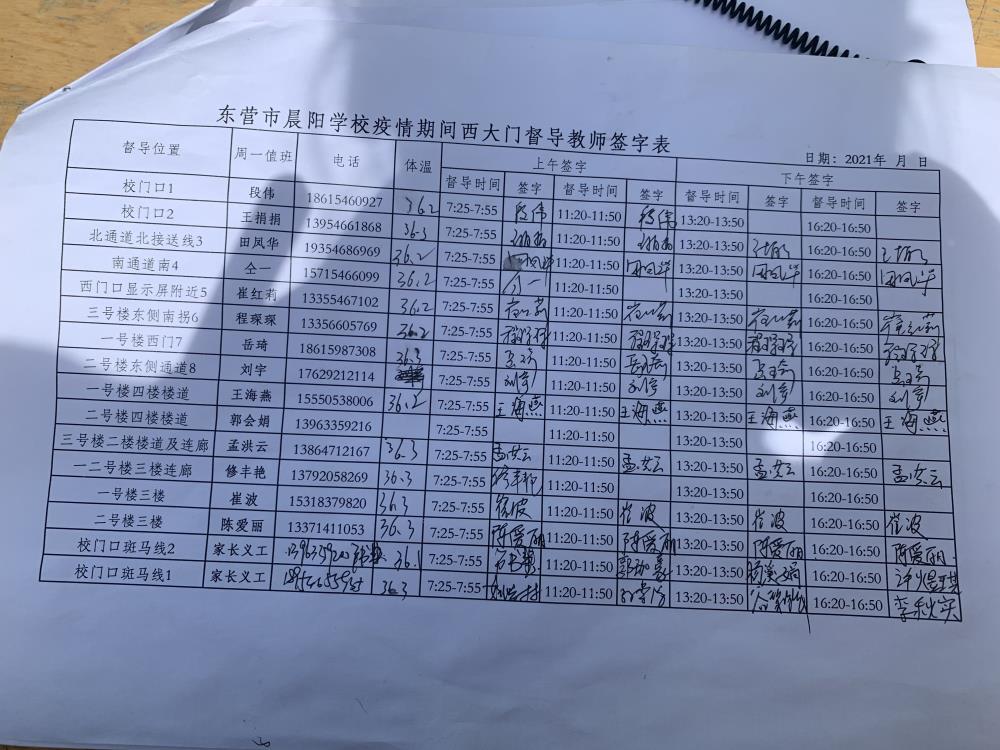 东营市晨阳学校疫情期间西大门督导教师签字表
日期：2021年 月 日
督导位置 周一值班 电话 体温 上午签字 下午签字
督导时间 签字 督导时间 签字 督导时间 签字 督导时间 签字
校门口1 段伟 18615460927 36.2 7:25-7:55 段伟 11:20-11:50 段伟 13:20-13:50 16:20-16:50
校门口2 王捐捐 13954661868 36.3 7:25-7:55 11:20-11:50 13:20-13:50 16:20-16:50
北通道北接送线3 田凤华 19354686969 36.2 7:25-7:55 田凤华 11:20-11:50 田凤华 13:20-13:50 田凤华 16:20-16:50 田凤华
南通道南4 仝一 15715466099 36.2 7:25-7:55 仝一 11:20-11:50 13:20-13:50 16:20-16:50
西门口显示屏附近5 崔红莉 13355467102 36.2 7:25-7:55 崔红莉 11:20-11:50 崔红莉 13:20-13:50 崔红莉 16:20-16:50 崔红莉
三号楼东侧南拐6 程琛琛 13356605769 36.2 7:25-7:55 程琛琛 11:20-11:50 程琛琛 13:20-13:50 程琛琛 16:20-16:50 程琛琛
一号楼西门7 岳琦 18615987308 36.3 7:25-7:55 岳琦 11:20-11:50 岳琦 13:20-13:50 岳琦 16:20-16:50 岳琦
二号楼东侧通道8 刘宇 17629212114 7:25-7:55 刘宇 11:20-11:50 刘宇 13:20-13:50 刘宇 16:20-16:50 刘宇
一号楼四楼楼道 王海燕 15550538006 36.2 7:25-7:55 王海燕 11:20-11:50 王海燕 13:20-13:50 王海燕 16:20-16:50 王海燕
二号楼四楼楼道 郭会娟 13963359216 7:25-7:55 11:20-11:50 13:20-13:50 16:20-16:50
三号楼二楼楼道及连廊 孟洪云 13864712167 36.3 7:25-7:55 孟洪云 11:20-11:50 孟洪云 13:20-13:50 孟洪云 16:20-16:50 孟洪云
一二号楼三楼连廊 修丰艳 13792058269 36.3 7:25-7:55 修丰艳 11:20-11:50 13:20-13:50 16:20-16:50
一号楼三楼 崔波 15318379820 36.3 7:25-7:55 崔波 11:20-11:50 崔波 13:20-13:50 崔波 16:20-16:50 崔波
二号楼三楼 陈爱丽 13371411053 36.3 7:25-7:55 陈爱丽 11:20-11:50 陈爱丽 13:20-13:50 陈爱丽 16:20-16:50 陈爱丽
校门口斑马线2 家长义工 36.1 7:25-7:55 11:20-11:50 13:20-13:50 16:20-16:50
校门口斑马线1 家长义工 36.3 7:25-7:55 11:20-11:50 13:20-13:50 16:20-16:50 李秋实